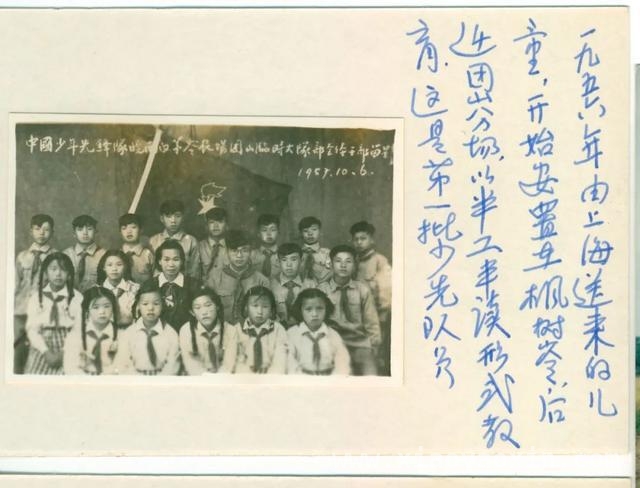 中國少年先鋒隊皖南白茅岺牧場團山臨時大隊部全体干部留影
1957.10.6.
一九五六年由上海送来的儿
童,开始安置在枫树岺,后
迁团山分场,以半工半读形式教
育.这是第一批少先队员